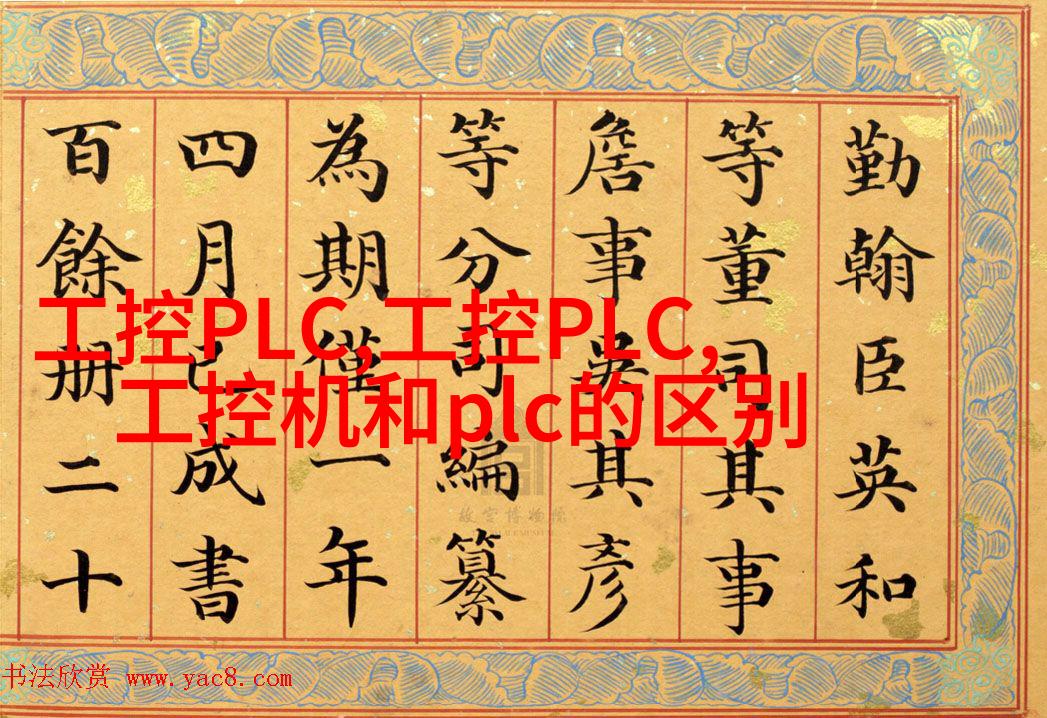 勤翰臣英和
等董司其事
詹事吳其彥
等分司編纂
為期僅一年
四月已成書
百餘冊二十
工控PLC,工控PLC,
工控机和plc的区别
故宫博物院
书法欣赏 www.yac8.com